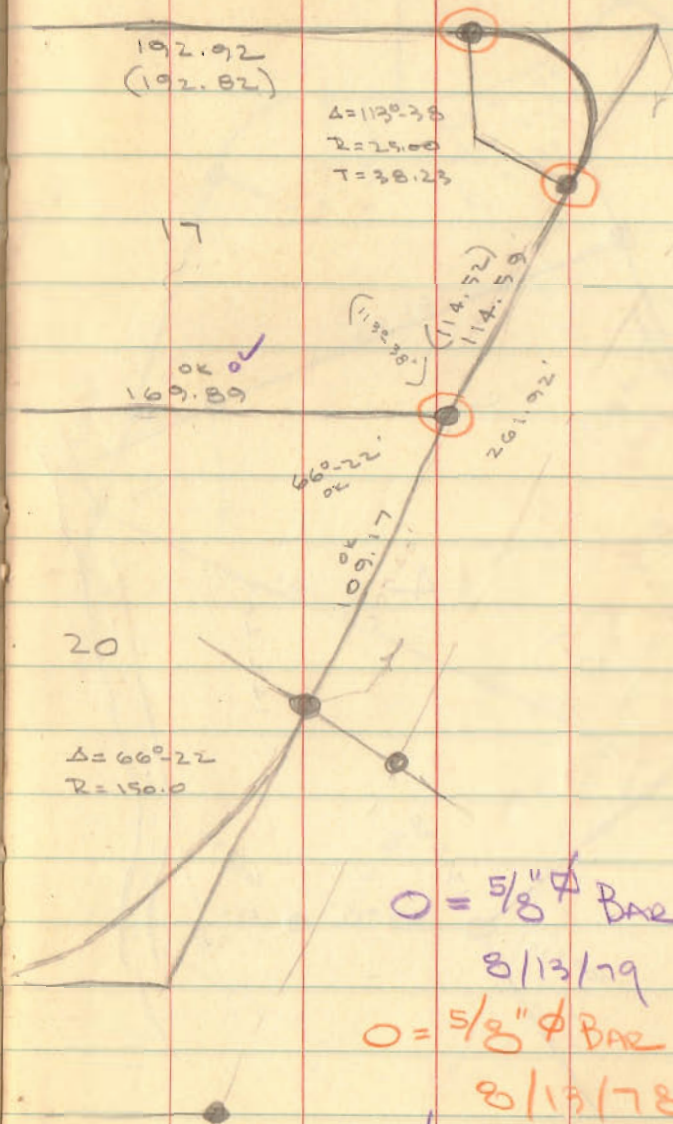 192.92
(192.82)
Δ=113°-38
R=25.00
T=38.23
17
(114.52)
114.59
(113°38')
OK
169.89
261.92'
66°-22'
OK
OK
109.17
20
Δ=66°-22
R=150.0
O = 5/8" Ø BAR
8/13/79
O = 5/8" Ø BAR
8/13/78